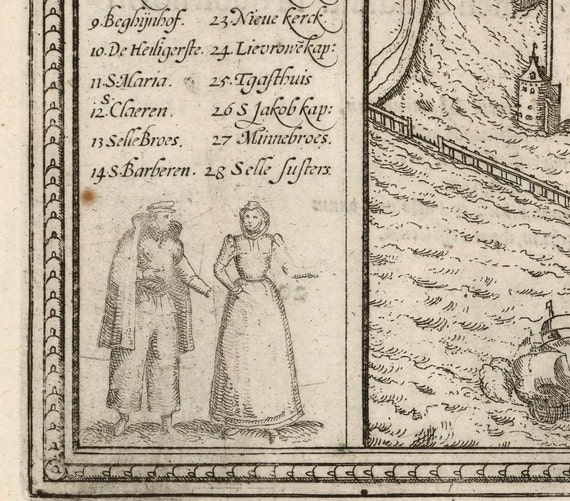 9. Beghijnhof. 23. Nieve kerck
10. De Heiligerste. 24. Lievrouwe kap:
11 S. Maria. 25. Tgasthuis
12 S Claeren. 26 S Jakob kap:
13 Selle Broes. 27 Minnebroes.
14 S. Barberen. 28 Selle susters